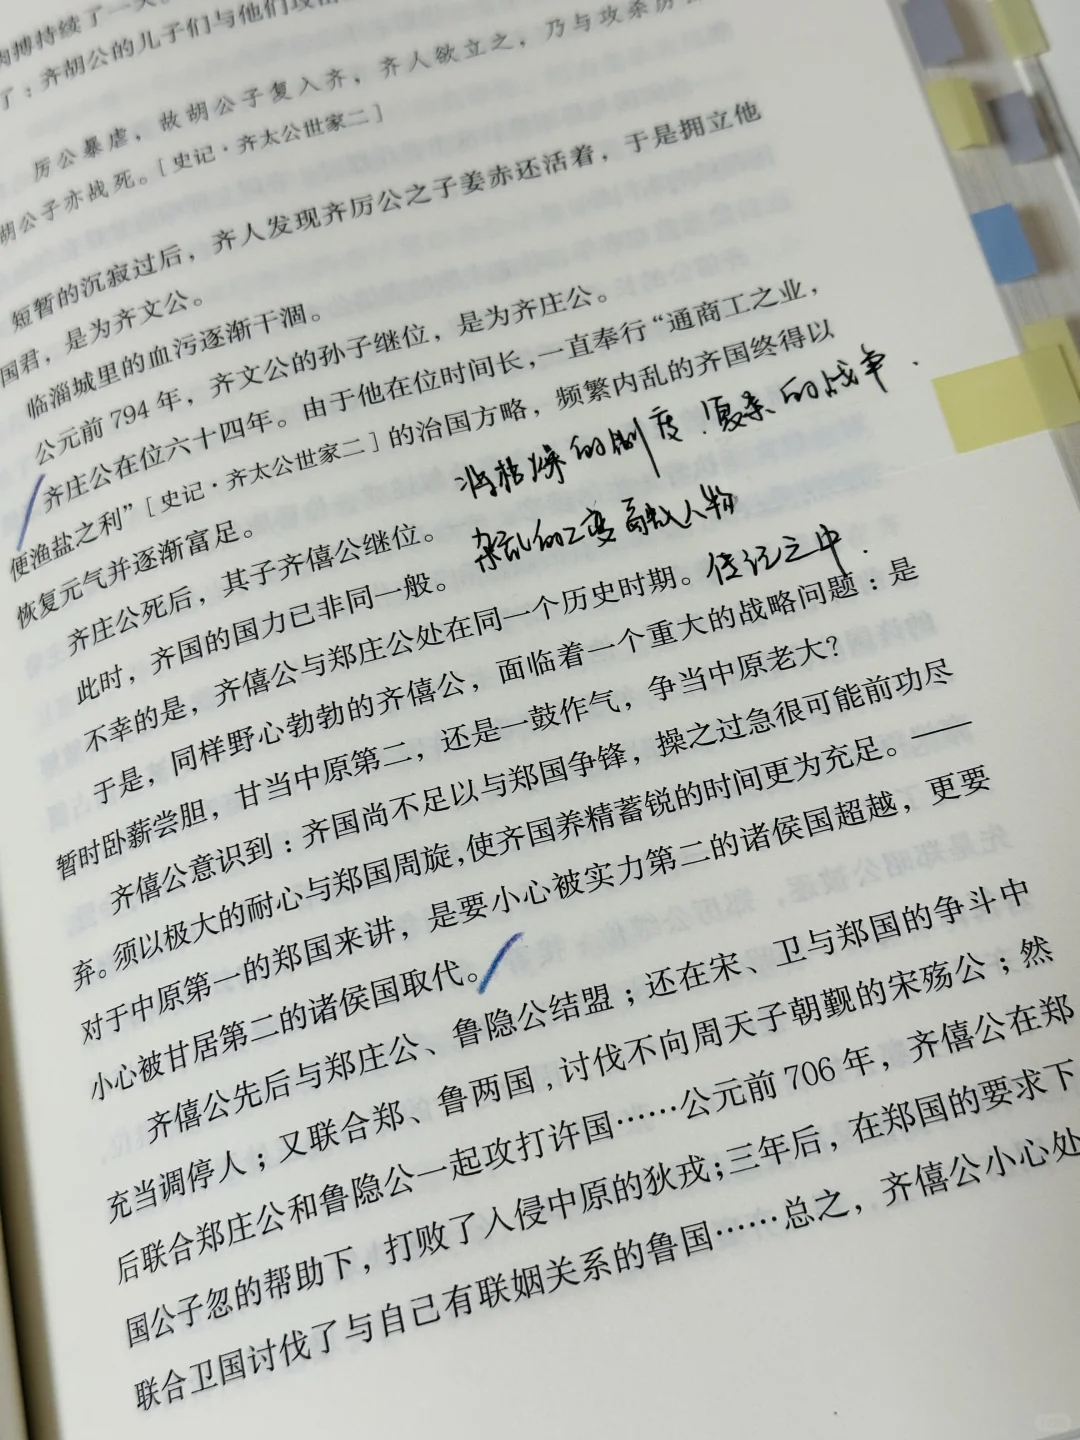 肉搏持续了一天。
了：齐胡公的儿子们与他们
厉公暴虐，故胡公子复入齐，齐人欲立之，乃与攻杀厉
胡公子亦战死。［史记·齐太公世家二］
短暂的沉寂过后，齐人发现齐厉公之子姜赤还活着，于是拥立他
国君，是为齐文公。
临淄城里的血污逐渐干涸。
公元前794年，齐文公的孙子继位，是为齐庄公。
齐庄公在位六十四年。由于他在位时间长，一直奉行“通商工之业，
便渔盐之利”［史记·齐太公世家二］的治国方略，频繁内乱的齐国终得以
恢复元气并逐渐富足。
将枯燥的制度、复杂的战争、
齐庄公死后，其子齐僖公继位。
杂乱的政变融入人物
此时，齐国的国力已非同一般。
传记之中．
不幸的是，齐僖公与郑庄公处在同一个历史时期。
于是，同样野心勃勃的齐僖公，面临着一个重大的战略问题：是
暂时卧薪尝胆，甘当中原第二，还是一鼓作气，争当中原老大？
齐僖公意识到：齐国尚不足以与郑国争锋，操之过急很可能前功尽
弃。须以极大的耐心与郑国周旋，使齐国养精蓄锐的时间更为充足。——
对于中原第一的郑国来讲，是要小心被实力第二的诸侯国超越，更要
小心被甘居第二的诸侯国取代。
齐僖公先后与郑庄公、鲁隐公结盟；还在宋、卫与郑国的争斗中
充当调停人；又联合郑、鲁两国，讨伐不向周天子朝觐的宋殇公；然
后联合郑庄公和鲁隐公一起攻打许国……公元前706年，齐僖公在郑
国公子忽的帮助下，打败了入侵中原的狄戎；三年后，在郑国的要求下
联合卫国讨伐了与自己有联姻关系的鲁国……总之，齐僖公小心处